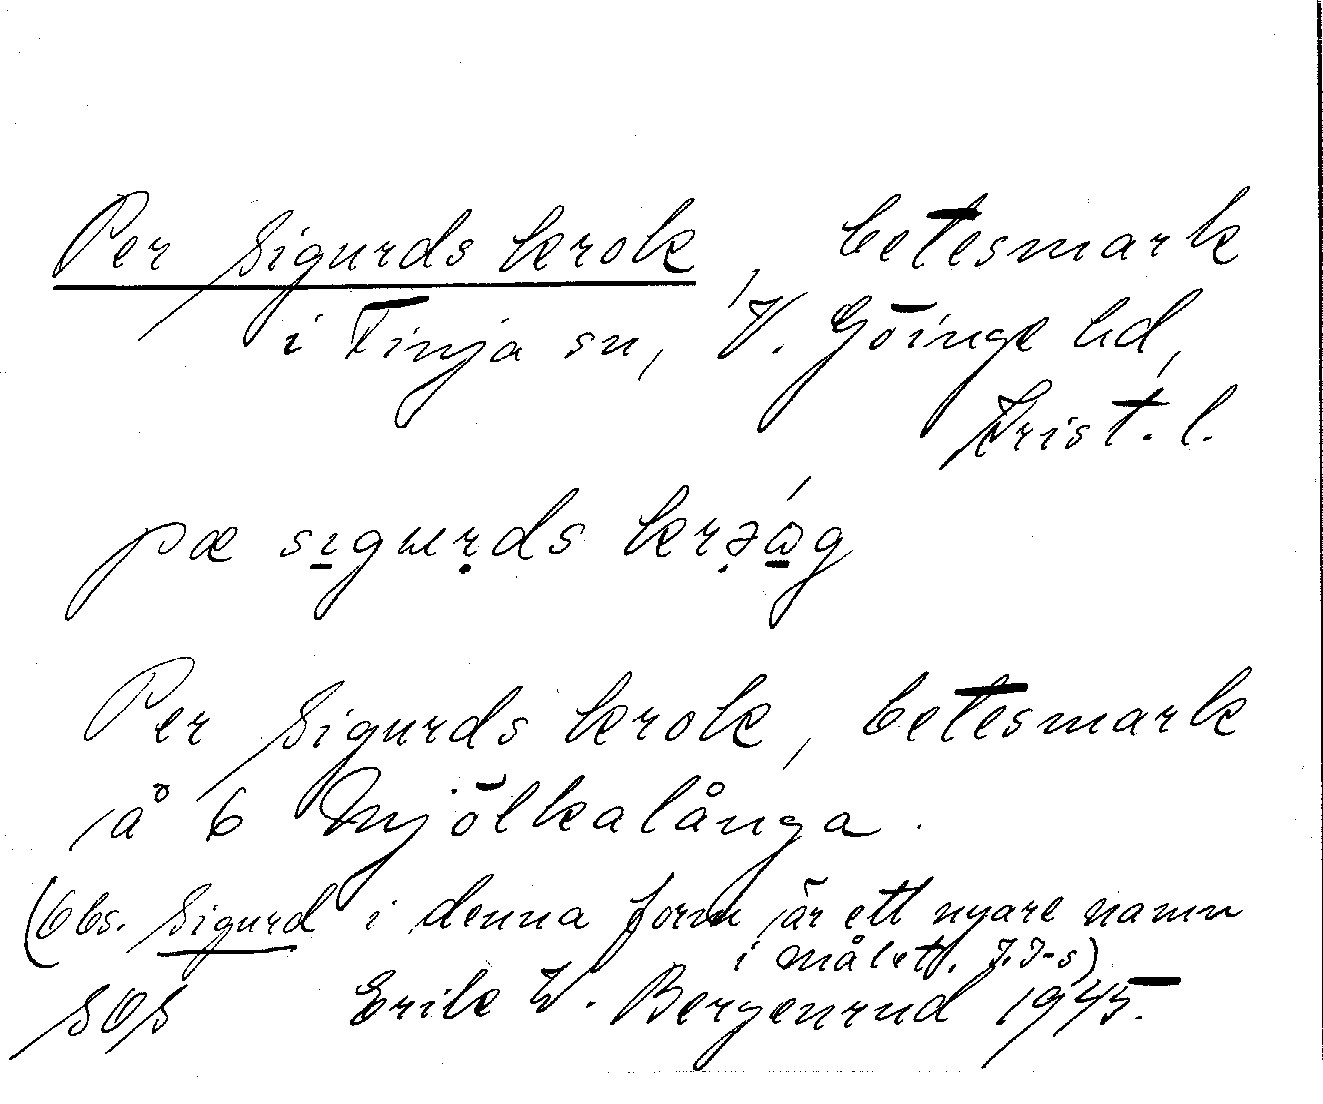 Per Sigurds krok, betesmark
i Finja sn, V. Göinge hd,
Krist. l.
pæ sıgɯṛds krə̣ώg
Per Sigurds krok, betesmark
å 6 Mjölkalånga.
(Obs. Sigurd i denna form är ett nyare namn
i målet. J.I-s)
SOS Erik W. Bergenrud 1945.